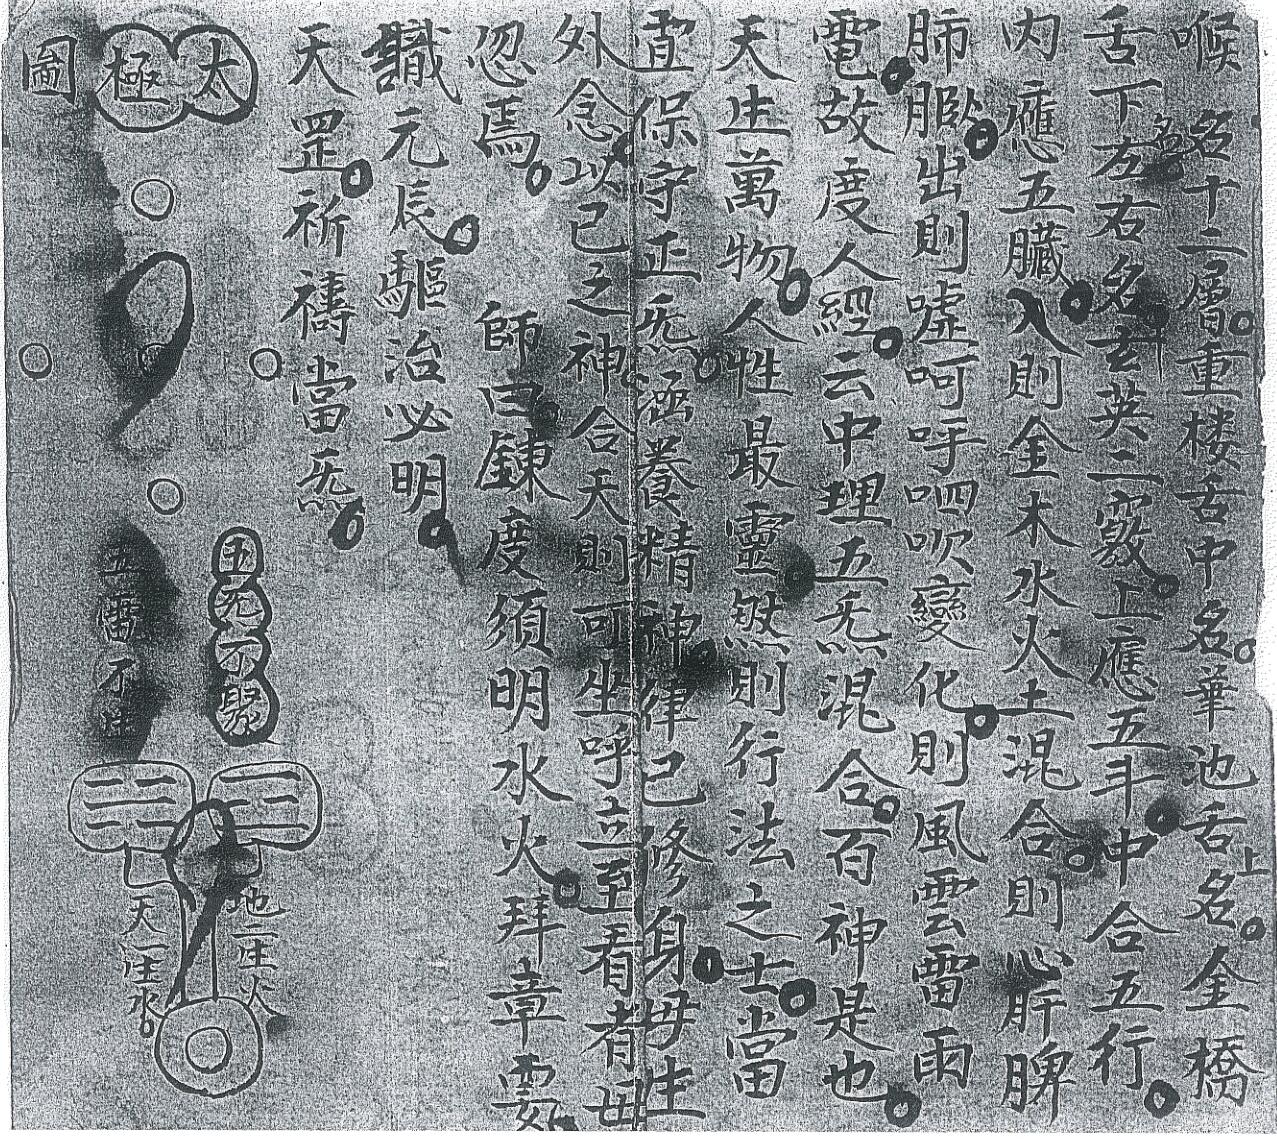 喉名十二層重楼舌中名華池舌上名金橋
舌下左右名玄英二竅上應五斗中合五行
内應五臟入則金木水火土混合則心肝脾
肺腎出則嘘呵呼呬吹變化則風雲雷雨
電故度人經云中理五炁混合百神是也
天生萬物人性最靈然則行法之士當
宜保守正炁涵養精神律己修身毋生
外念以己之神合天則可坐呼立至看者毋
忽焉 師曰鍊度須明水火拜章要
識元辰驅治必明
天罡祈禱當炁
太極
圖
五炁不聚
五雷不
地二生火
天一生水